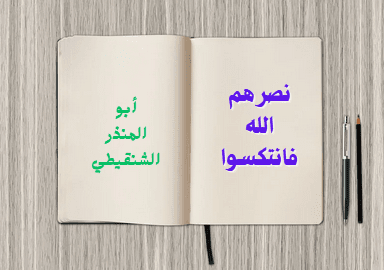 نصرهم
الله
فانتكسوا
أبو
المنذر
الشنقيطي